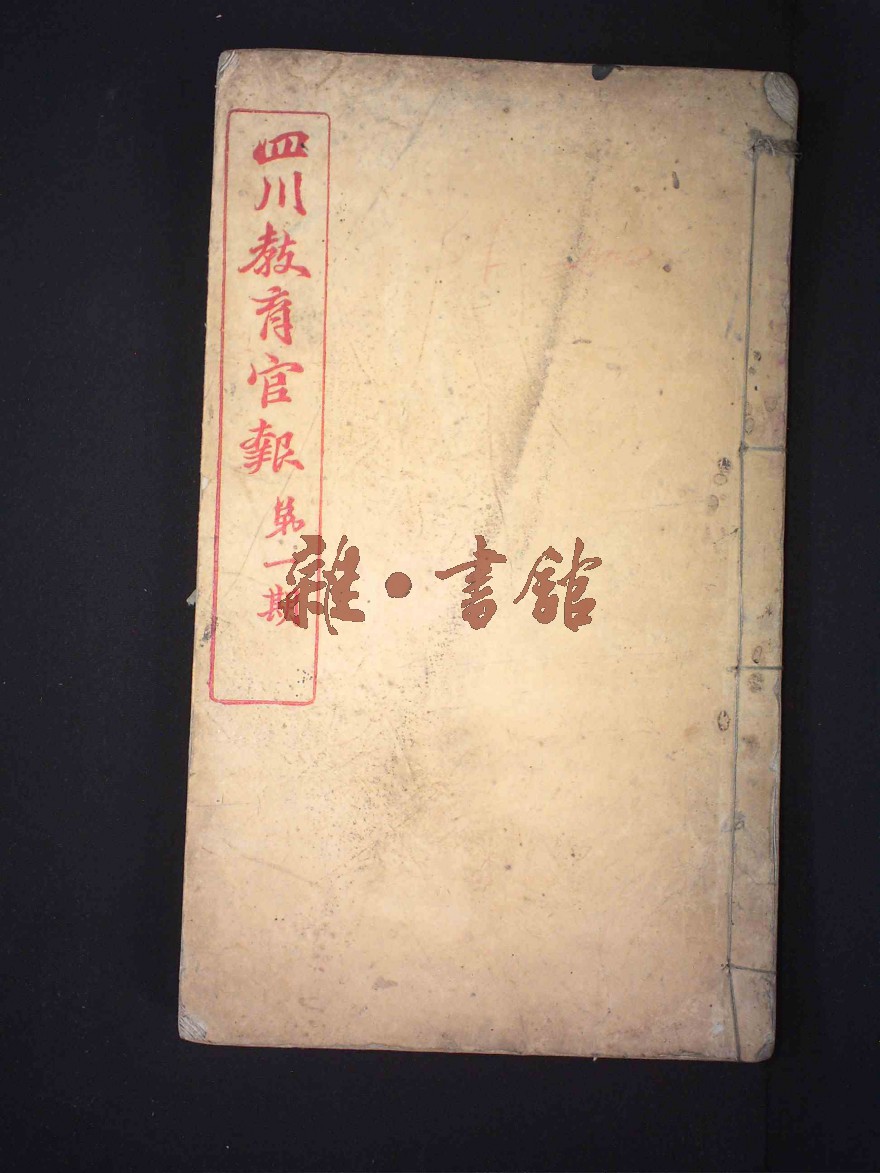 四川教育官報
第一期
雜·書館